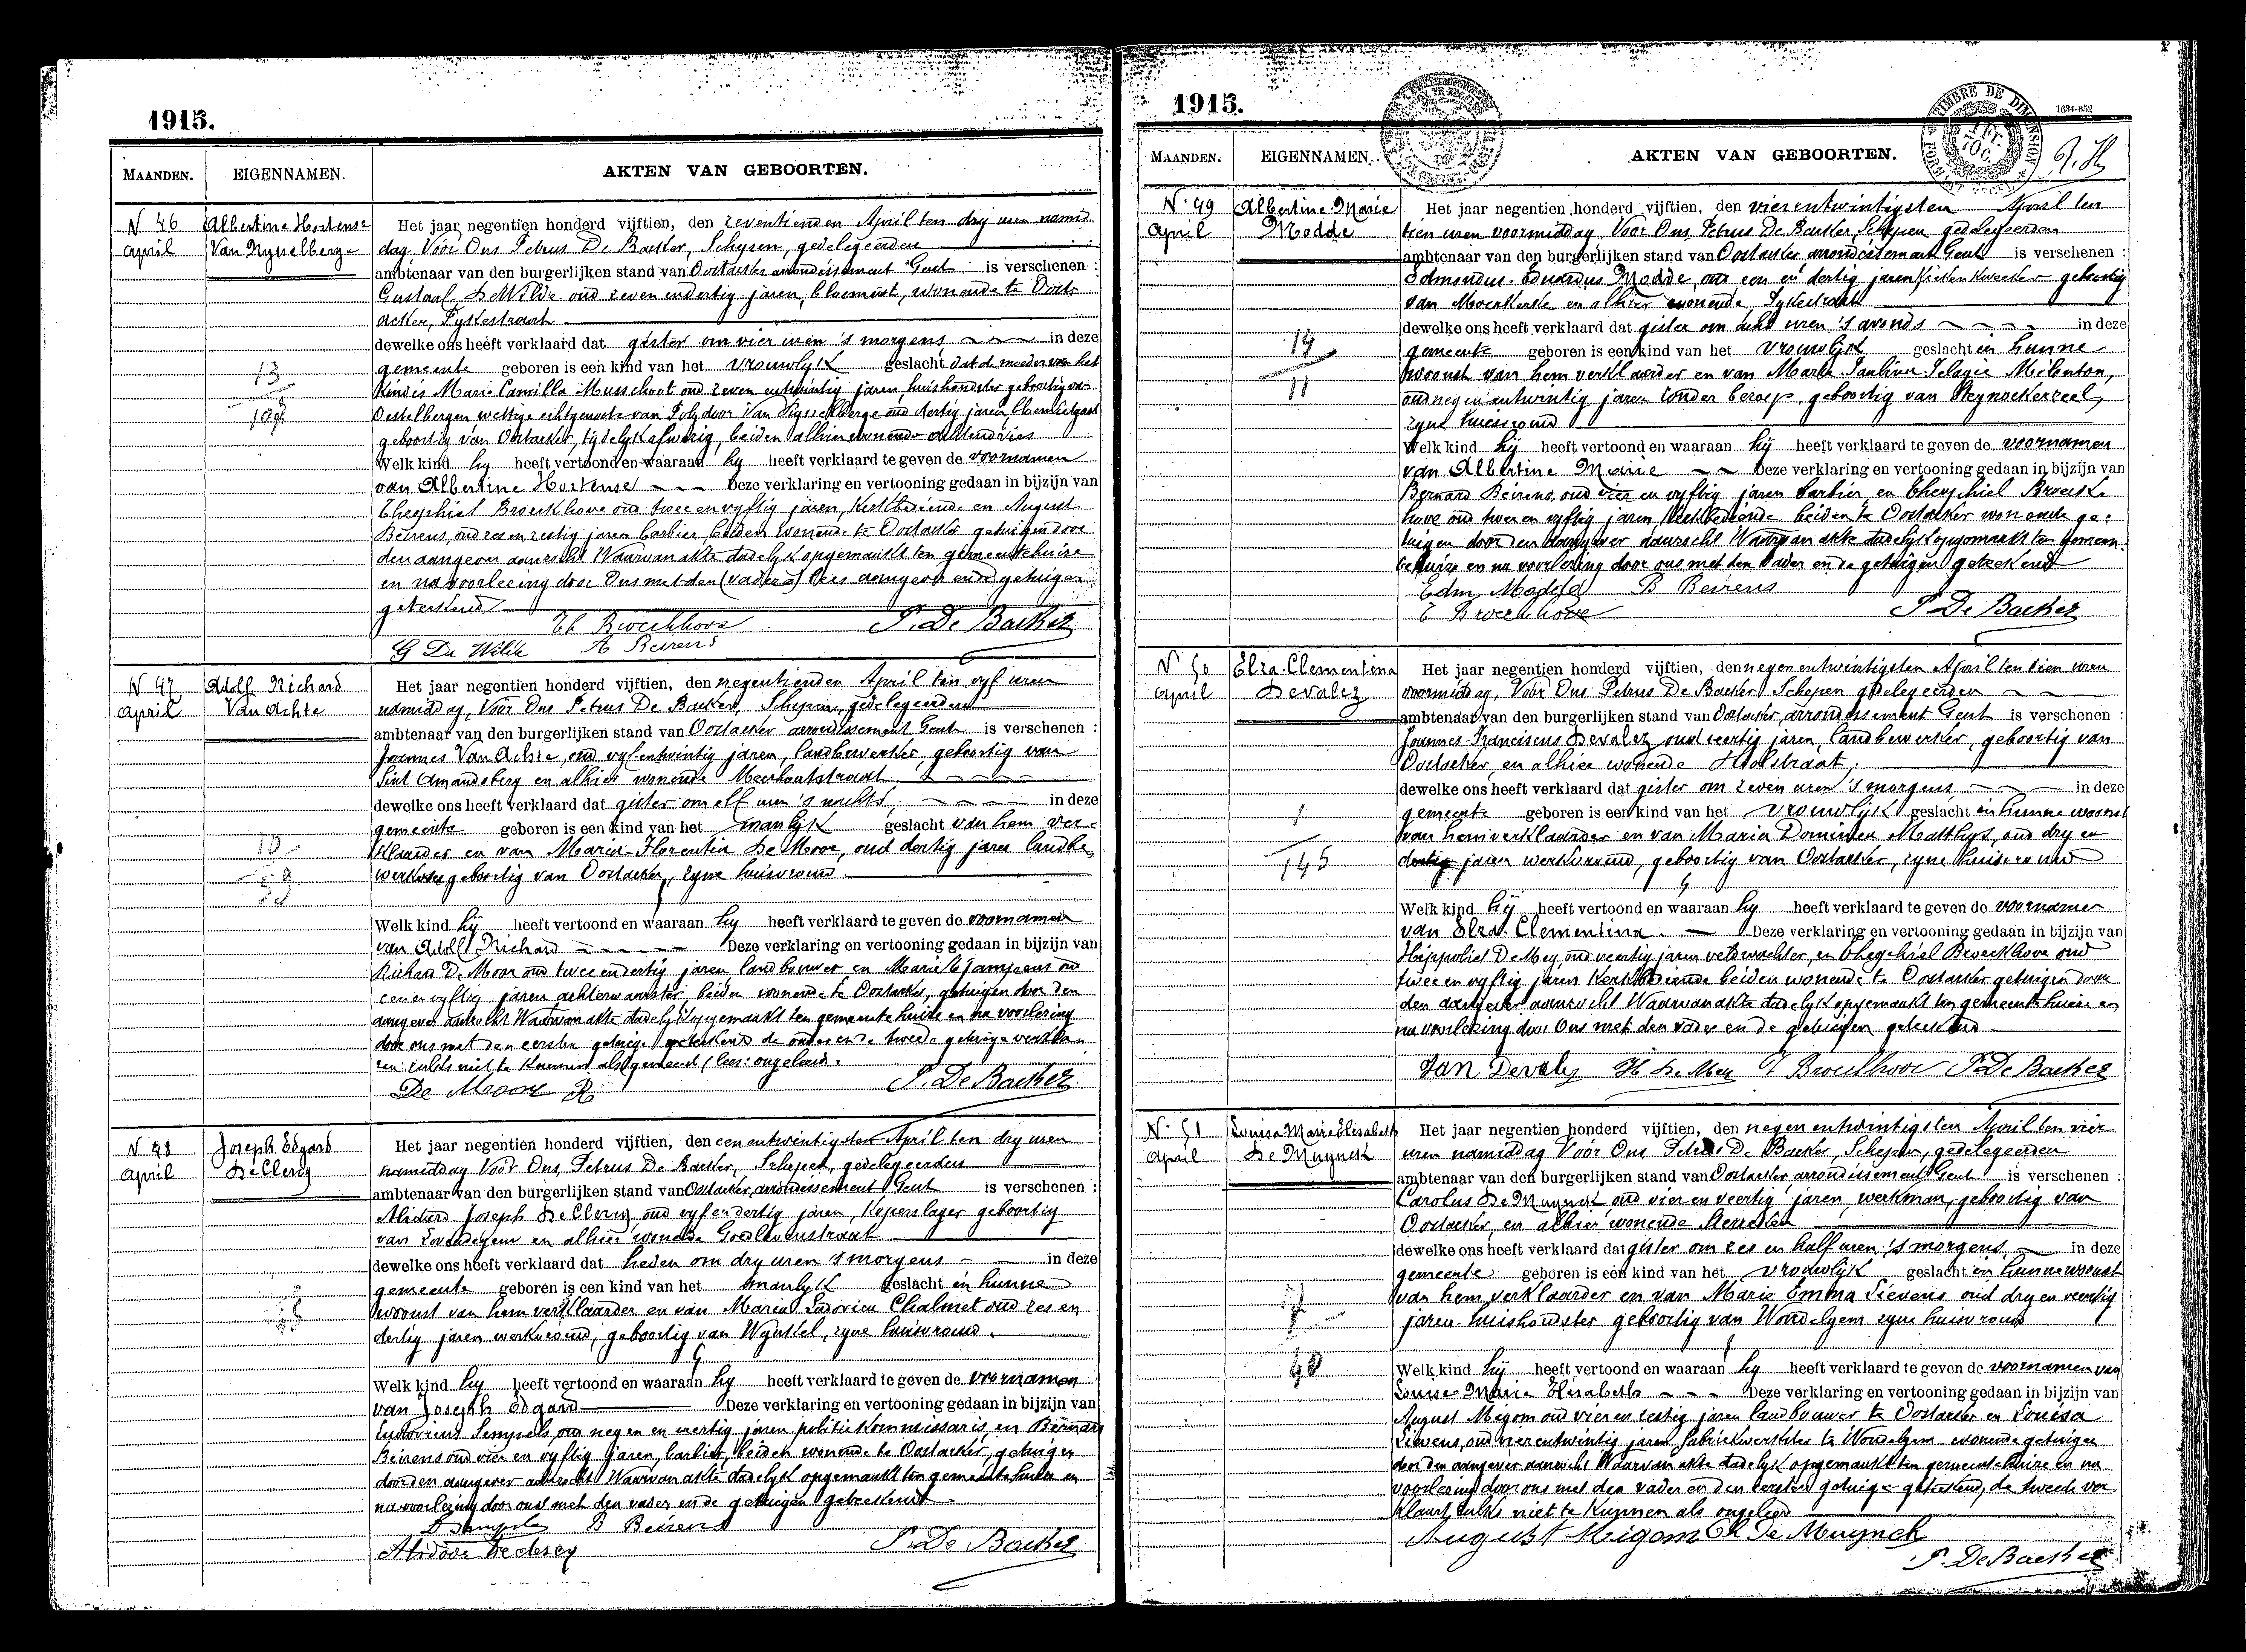 1915.
MAANDEN. EIGENNAMEN. AKTEN VAN GEBOORTEN.
N 46 Albertine Hortense
April Van Rysselberge
Het jaar negentien honderd vijftien, den zeventienden April ten dry uren namid
dag, Voor Ons Petrus De Backer, Schepen, gedelegeerden
ambtenaar van den burgerlijken stand van Oostacker arrondissement Gent is verschenen :
Gustaaf De Wilde oud zeven endertig jaren, bloemist, wonende te Oost-
acker, Pykestraat
dewelke ons heeft verklaard dat gister om vier uren 's morgens in deze
gemeente geboren is een kind van het vrouwlyk geslacht dat de moeder van het
kind is Marie Camilla Musschoot oud zeven entwintig jaren, huishoudster geboortig van
Oostelbergen wettige echtgenoote van Polydoor Van Rysselberge oud dertig jaren, bloemist
geboortig van Oostacker, tydelyk afwezig, beiden alhier wonende
13
Welk kind hy heeft vertoond en waaraan hy heeft verklaard te geven de voornamen
van Albertine Hortense Deze verklaring en vertooning gedaan in bijzijn van
Theophiel Broeckhove oud twee en vyftig jaren, kerkbediende en August
Beirens, oud zes en zestig jaren barbier, beiden wonende te Oostacker getuigen door
den aangever aanzocht Waarvan akte dadelyk opgemaakt ten gemeentehuize
en na voorlezing door Ons met den (vader) lees aangever ende getuigen
geteekend
P. De Backer
G De Wilde A Beirens
N 47 Adolf Richard
April Van Achte
Het jaar negentien honderd vijftien, den negentienden April ten vyf uren
namiddag, Voor Ons Petrus De Backer, Schepen, gedelegeerden
ambtenaar van den burgerlijken stand van Oostacker arrondissement Gent is verschenen :
Joannes Van Achte, oud vyfentwintig jaren, landbewerker, geboortig van
Sint Amandsberg en alhier wonende Meerhoutstraat
dewelke ons heeft verklaard dat gister om elf uren 's nachts in deze
gemeente geboren is een kind van het manlyk geslacht van hem ver-
klaarder en van Maria Florentia De Moor, oud dertig jaren landbe
werkster geboortig van Oostacker, zyne huisvrouw
Welk kind hy heeft vertoond en waaraan hy heeft verklaard te geven de voornamen
van Adolf Richard Deze verklaring en vertooning gedaan in bijzijn van
Richard De Moor oud twee endertig jaren landbouwer en Marie Janssens oud
een en vyftig jaren achterwaarster, beiden wonende te Oostacker, getuigen door den
aangever aanzocht Waarvan akte dadelyk opgemaakt ten gemeentehuize en na voorlezing
door ons met den eersten getuige geteekend de ander ende tweede getuige verklaa
ren zulks niet te kunnen als ongeleerd.
De Moor R P. De Backer
N 48 Joseph Edgard
April De Clercq
Het jaar negentien honderd vijftien, den een entwintigsten April ten dry uren
namiddag Voor Ons, Petrus De Backer, Schepen, gedelegeerden
ambtenaar van den burgerlijken stand van Oostacker, arrondissement Gent is verschenen :
Alidoor Joseph De Clercq, oud vyfendertig jaren, Koperslager geboortig
van Lovendegem en alhier wonende Goedlevenstraat
dewelke ons heeft verklaard dat heden om dry uren 's morgens in deze
gemeente geboren is een kind van het manlyk geslacht in hunne
woonst van hem verklaarder en van Maria Ludovica Chalmet oud zes en
dertig jaren werkvrouw, geboortig van Wynkel, zyne huisvrouw.
Welk kind hy heeft vertoond en waaraan hy heeft verklaard te geven de voornamen
van Joseph Edgard Deze verklaring en vertooning gedaan in bijzijn van
Ludovicus Sempels, oud negen en veertig jaren politiekommissaris, en Bernard
Beirens oud vier en vyftig jaren, barbier, beiden wonende te Oostacker, getuigen
door den aangever aanzocht Waarvan akte dadelyk opgemaakt ten gemeentehuize en
na voorlezing door ons met den vader ende getuigen geteekend.
B Beirens
Alidoor Declercq P. De Backer
1915.
TIMBRE DE DIMENSION
1634-652
MAANDEN. EIGENNAMEN. AKTEN VAN GEBOORTEN.
N. 49 Albertine Marie
April Modde
Het jaar negentien honderd vijftien, den vier entwintigsten April ten
tien uren voormiddag Voor Ons, Petrus De Backer, Schepen gedelegeerden
ambtenaar van den burgerlijken stand van Oostacker arrondissement Gent is verschenen :
Edmondus Eduardus Modde, oud een en dertig jaren kiekenkweeker geboortig
van Moerkerke en alhier wonende
dewelke ons heeft verklaard dat gister om acht uren 's avonds in deze
gemeente geboren is een kind van het vrouwlyk geslacht in hunne
woonst van hem verklaarder en van Maria Paulina Pelagie
oud negen entwintig jaren zonder beroep, geboortig van
zyne huisvrouw
11
Welk kind hij heeft vertoond en waaraan hij heeft verklaard te geven de voornamen
van Albertine Marie Deze verklaring en vertooning gedaan in bijzijn van
Bernard Beirens, oud vier en vyftig jaren barbier, en Theophiel Broeck-
hove oud twee en vyftig jaren kerkbediende beiden te Oostacker wonende ge-
tuigen door den aangever aanzocht Waarvan akte dadelyk opgemaakt ten gemeen-
tehuize en na voorlezing door ons met den vader en de getuigen geteekend
Edm. Modde B Beirens
T Broeckhove P. De Backer
N 50 Elza Clementina
April Devalez
Het jaar negentien honderd vijftien, den negen entwintigsten April ten tien uren
voormiddag, Voor Ons Petrus De Backer Schepen gedelegeerden
ambtenaar van den burgerlijken stand van Oostacker, arrondissement Gent is verschenen :
Joannes-Franciscus Devalez oud veertig jaren, landbewerker, geboortig van
Oostacker, en alhier wonende Holstraat,
dewelke ons heeft verklaard dat gister om zeven uren 's morgens in deze
gemeente geboren is een kind van het vrouwlyk geslacht in hunne woonst
van hem verklaarder en van Maria Domenica Matthys, oud dry en
dertig jaren werkvrouw, geboortig van Oostacker, zyne huisvrouw
1
145
Welk kind hij heeft vertoond en waaraan hy heeft verklaard te geven de voornamen
van Elza Clementina. Deze verklaring en vertooning gedaan in bijzijn van
Hippoliet De Mey, oud veertig jaren veldwachter, en Theophiel Broeckhove oud
twee en vyftig jaren kerkbediende beiden wonende te Oostacker getuigen door
den aangever aanzocht Waarvan akte dadelyk opgemaakt ten gemeentehuize en
na voorlezing door Ons met den vader en de getuigen geteekend
Jan Devalez H De Mey T Broeckhove P. De Backer
N. 51 Louisa Marie Elisabeth
April De Muynck
Het jaar negentien honderd vijftien, den negen entwintigsten April ten vier
uren namiddag Voor Ons Petrus De Backer, Schepen, gedelegeerden
ambtenaar van den burgerlijken stand van Oostacker, arrondissement Gent is verschenen :
Carolus De Muynck, oud vier en veertig jaren, werkman, geboortig van
Oostacker, en alhier wonende
dewelke ons heeft verklaard dat gister om zes en half uren 's morgens in deze
gemeente geboren is een kind van het vrouwlyk geslacht in hunne woonst
van hem verklaarder en van Marie Emma Sievens oud dry en veertig
jaren huishoudster geboortig van Wondelgem zyne huisvrouw
Welk kind hij heeft vertoond en waaraan hy heeft verklaard te geven de voornamen van
Louisa Marie Elisabeth Deze verklaring en vertooning gedaan in bijzijn van
August Migom oud vier en zestig jaren landbouwer te Oostacker en Louisa
Sievens, oud vier entwintig jaren fabriekwerkster te Wondelgem wonende getuigen
door den aangever aanzocht Waarvan akte dadelyk opgemaakt ten gemeentehuize en na
voorlezing door ons met den vader en den eersten getuige geteekend, de tweede ver
klaart zulks niet te kunnen als ongeleerd
August Migom Ch De Muynck
P. De Backer